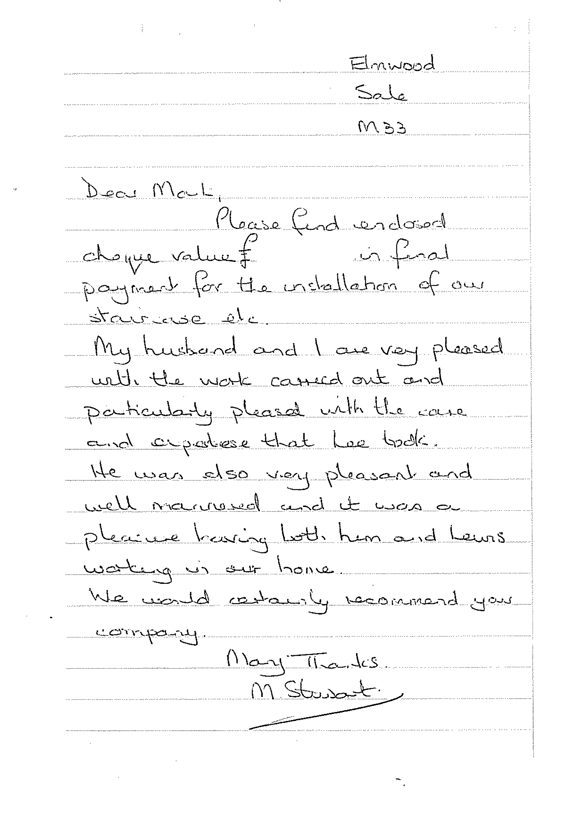 Elmwood
Sale
M33
Dear Mark,
Please find enclosed
cheque value £ in final
payment for the installation of our
staircase etc.
My husband and I are very pleased
with the work carried out and
particularly pleased with the care
and expertese that Lee took.
He was also very pleasant and
well mannered and it was a
pleasure having both him and Lewis
working in our home.
We would certainly recommend your
company.
Many Thanks.
M. Stewart.